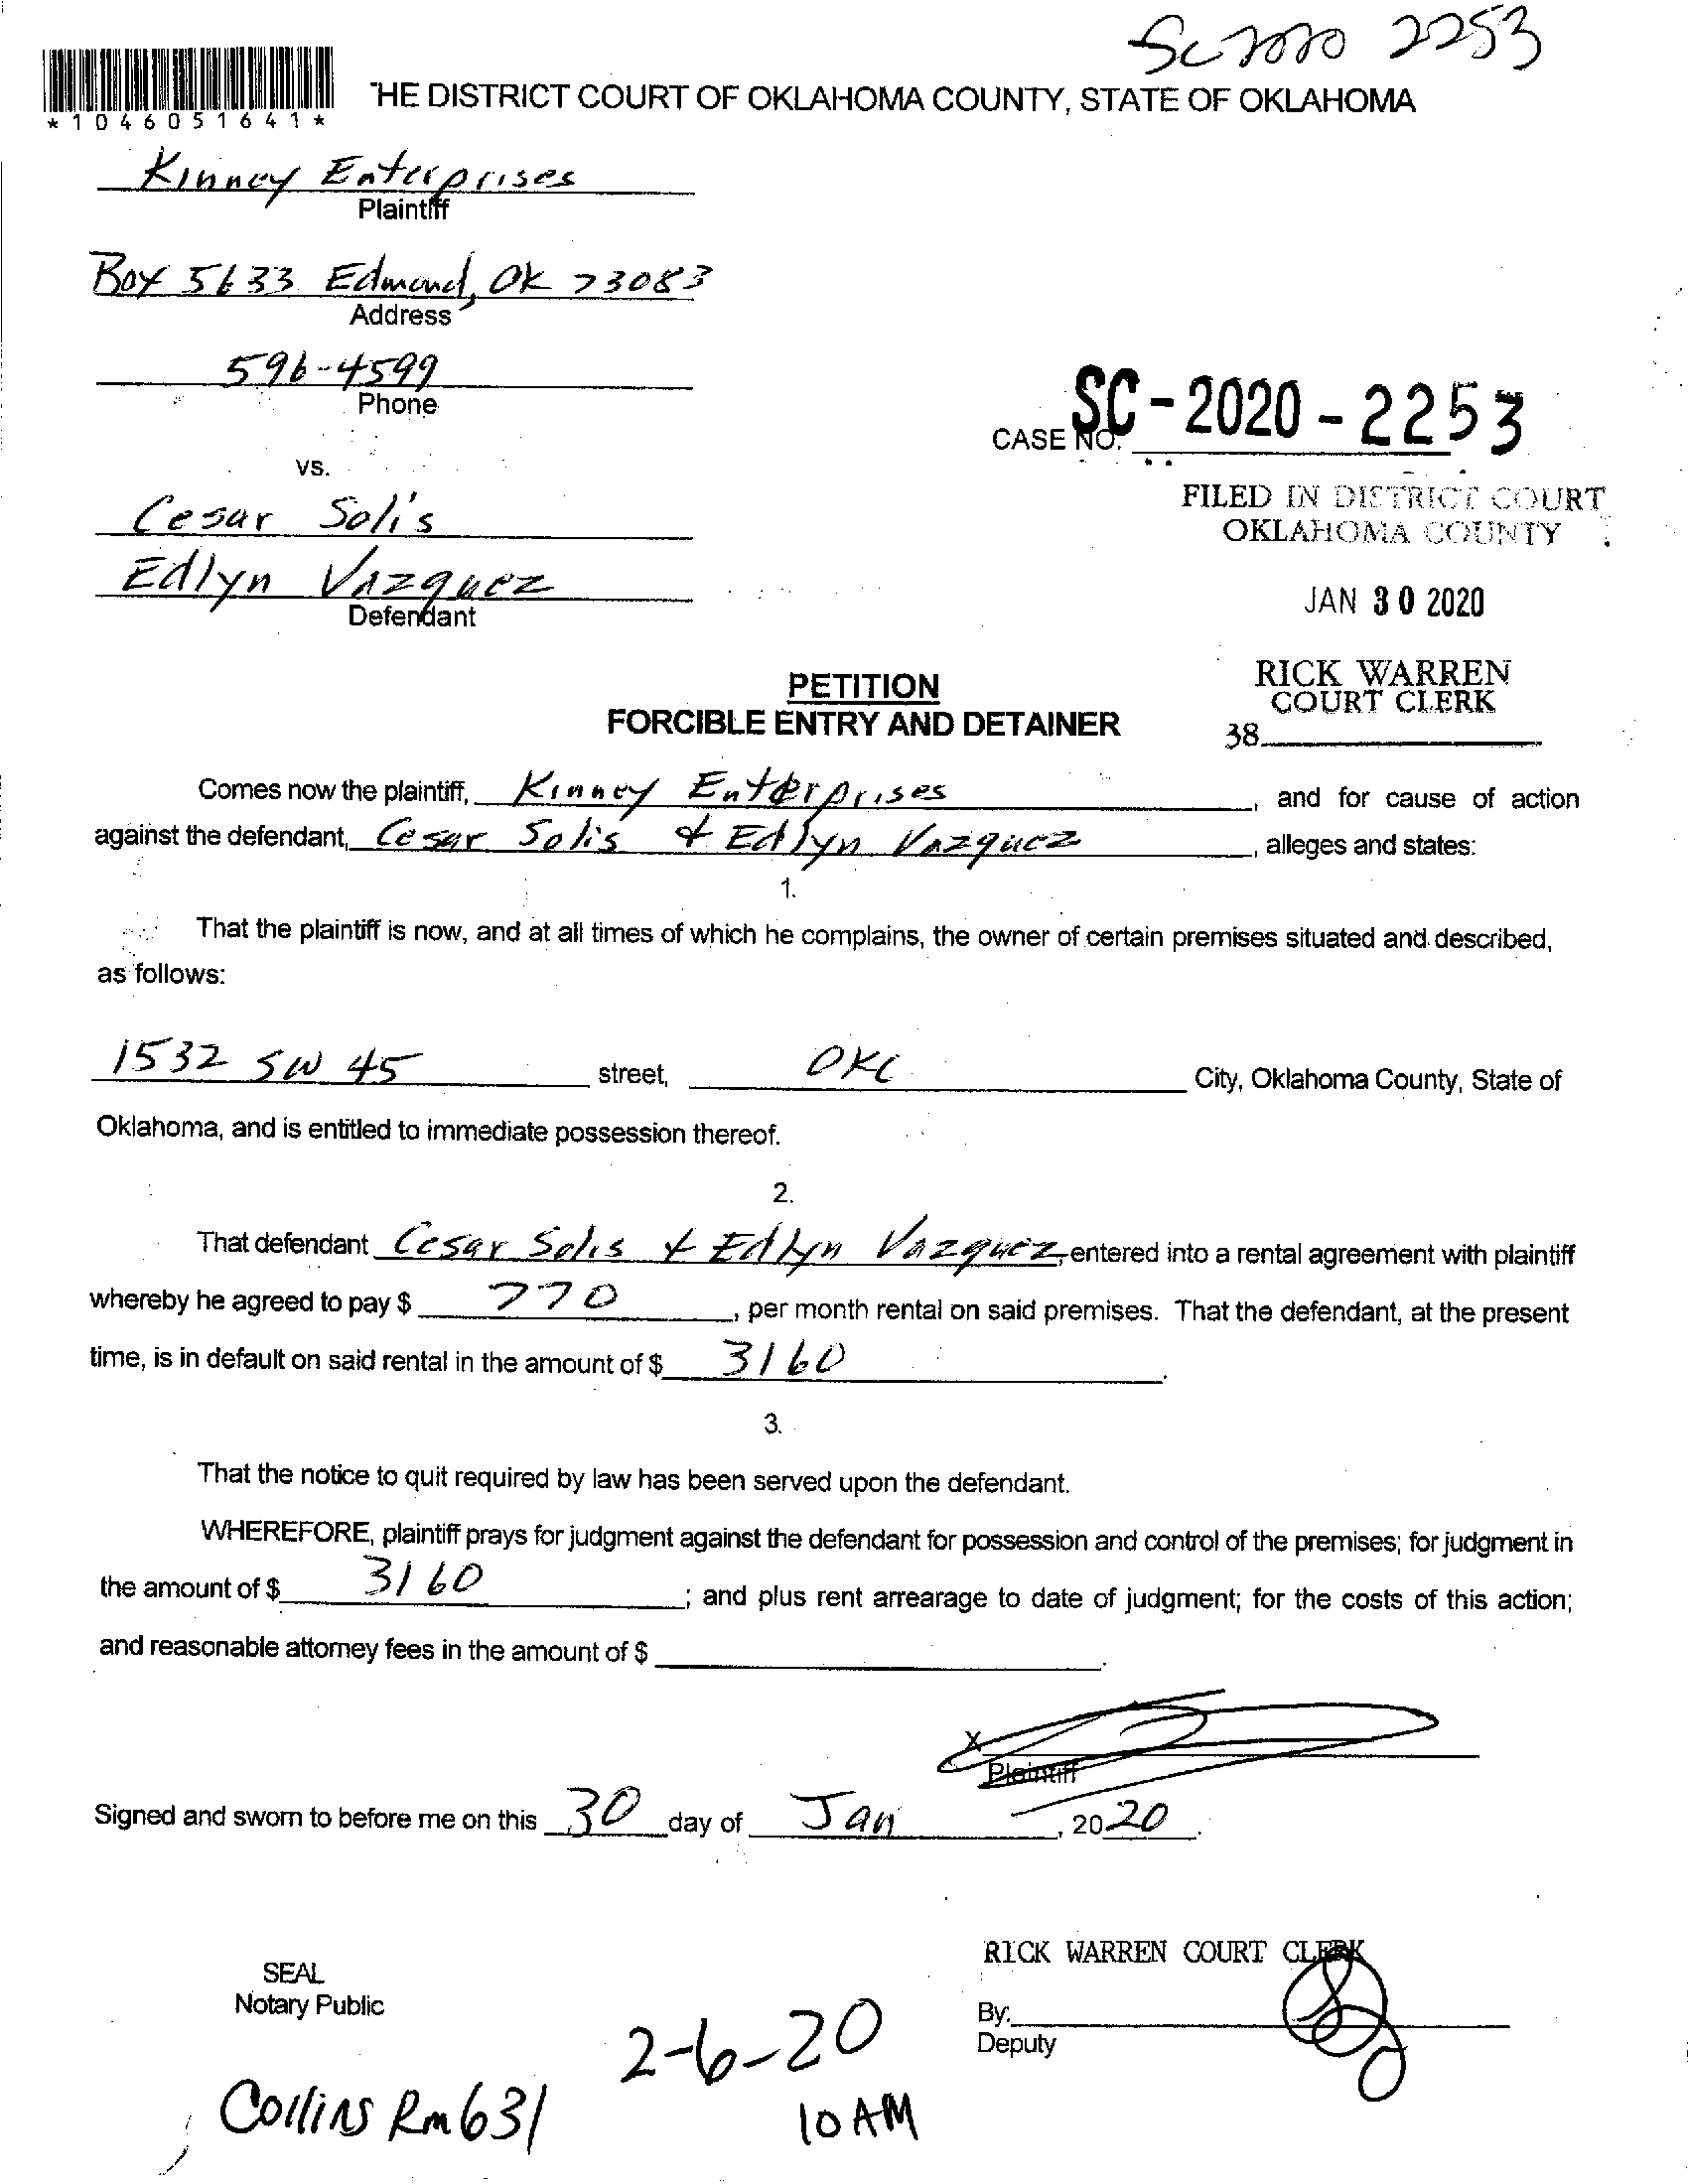 SC 2020 2253
*1046051641*
THE DISTRICT COURT OF OKLAHOMA COUNTY, STATE OF OKLAHOMA
Kinney Enterprises
Plaintiff
Box 5633 Edmond, OK 73083
Address
596-4599
Phone
CASE NO. SC-2020-2253
vs.
FILED IN DISTRICT COURT
OKLAHOMA COUNTY
Cesar Solis
Edlyn Vazquez
Defendant
JAN 30 2020
RICK WARREN
COURT CLERK
38
PETITION
FORCIBLE ENTRY AND DETAINER
Comes now the plaintiff, Kinney Enterprises, and for cause of action
against the defendant, Cesar Solis & Edlyn Vazquez, alleges and states:
1.
That the plaintiff is now, and at all times of which he complains, the owner of certain premises situated and described,
as follows:
1532 SW 45 street, OKC City, Oklahoma County, State of
Oklahoma, and is entitled to immediate possession thereof.
2.
That defendant Cesar Solis & Edlyn Vazquez, entered into a rental agreement with plaintiff
whereby he agreed to pay $ 770, per month rental on said premises. That the defendant, at the present
time, is in default on said rental in the amount of $ 3160.
3.
That the notice to quit required by law has been served upon the defendant.
WHEREFORE, plaintiff prays for judgment against the defendant for possession and control of the premises; for judgment in
the amount of $ 3160; and plus rent arrearage to date of judgment; for the costs of this action;
and reasonable attorney fees in the amount of $ .
X
Plaintiff
Signed and sworn to before me on this 30 day of Jan, 2020.
RICK WARREN COURT CLERK
SEAL
Notary Public
By:
Deputy
2-6-20
Collins Rm 631
10 AM